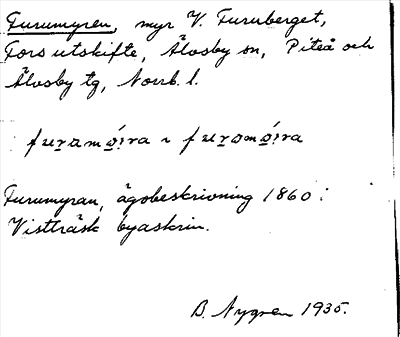 Furumyren, myr V. Furuberget,
Fors utskifte, Älvsby sn, Piteå och
Älvsby tg, Norrb. l.
Furumyran, ägobeskrivning 1860 i
Vistträsk byaskrin.
B. Nygren 1935.